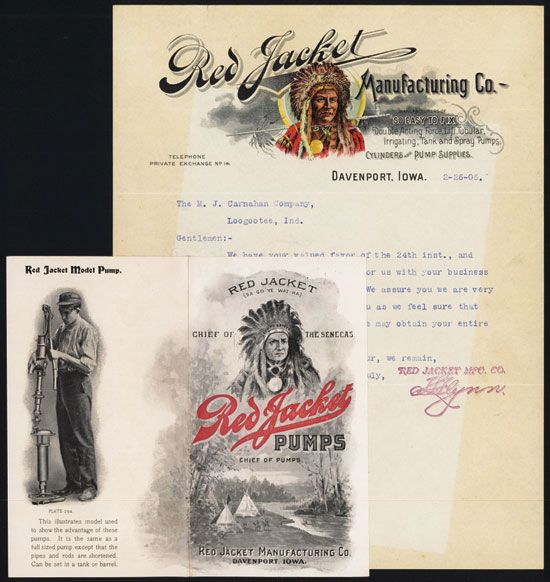 Red Jacket
Manufacturing Co.
MANUFACTURERS OF
"SO EASY TO FIX"
Double Acting Force, Lift, Tubular,
Irrigating, Tank and Spray Pumps,
CYLINDERS AND PUMP SUPPLIES.
TELEPHONE
PRIVATE EXCHANGE No 14.
DAVENPORT, IOWA. 2-26-06.
The M. J. Carnahan Company,
Loogootee, Ind.
Gentlemen:-
We have your valued favor of the 24th inst., and
or us with your business
We assure you we are very
u as we feel sure that
e may obtain your entire
ur, we remain,
RED JACKET MFG. CO.
Red Jacket Model Pump.
PLATE 794.
This illustrates model used
to show the advantage of these
pumps. It is the same as a
full sized pump except that the
pipes and rods are shortened.
Can be set in a tank or barrel.
RED JACKET
(SA-GO-YE-WAT-HA)
CHIEF OF THE SENECAS
Red Jacket
PUMPS
CHIEF OF PUMPS
RED JACKET MANUFACTURING CO.
DAVENPORT, IOWA.